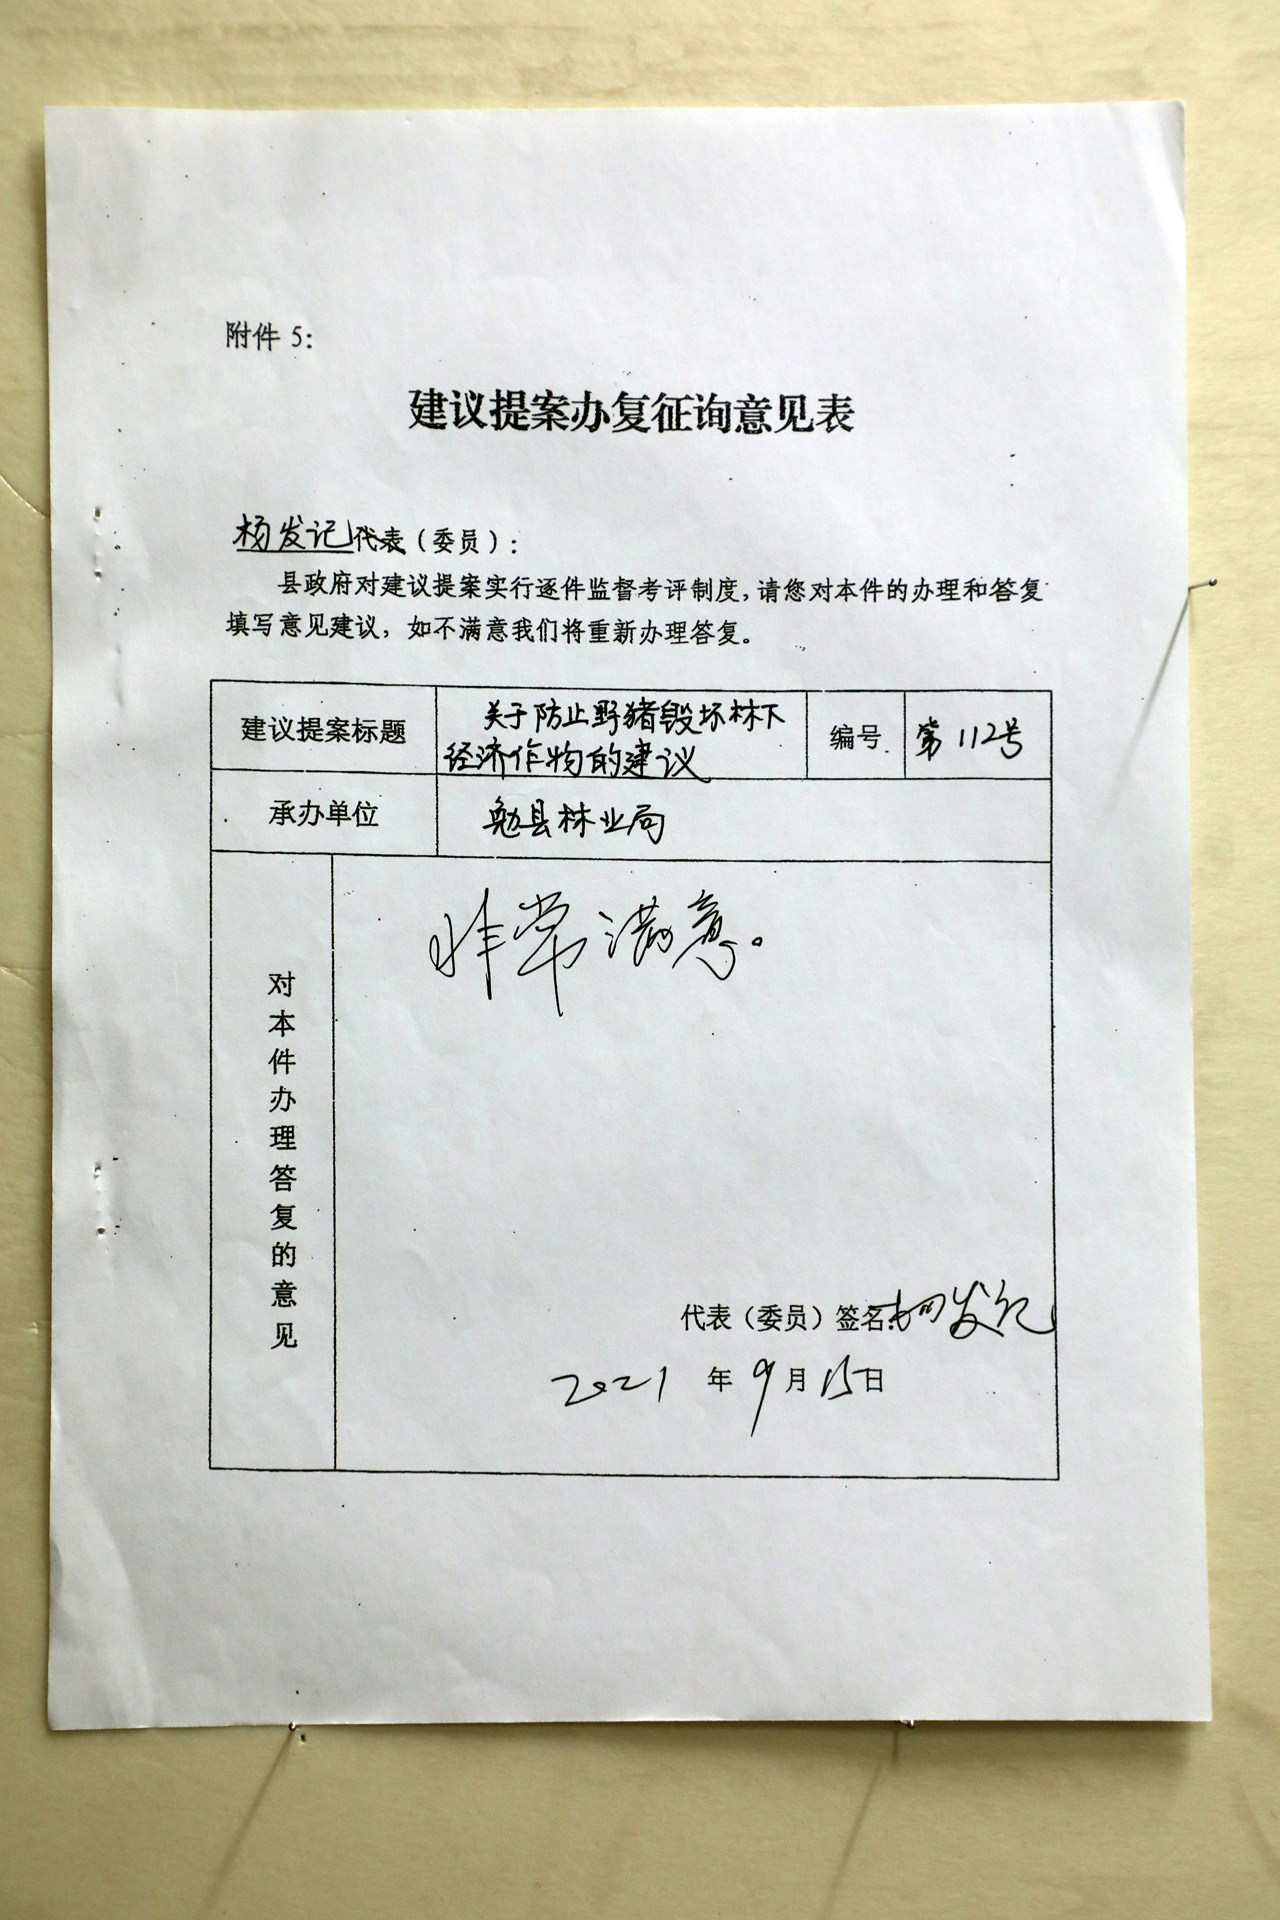 附件 5:
建议提案办复征询意见表
杨发记代表（委员）:
县政府对建议提案实行逐件监督考评制度,请您对本件的办理和答复
填写意见建议，如不满意我们将重新办理答复。
建议提案标题
关于防止野猪毁坏林下
经济作物的建议
编号
第112号
承办单位
勉县林业局
对本件办理答复的意见
非常满意。
代表（委员）签名:杨发记
2021 年 9 月 15 日